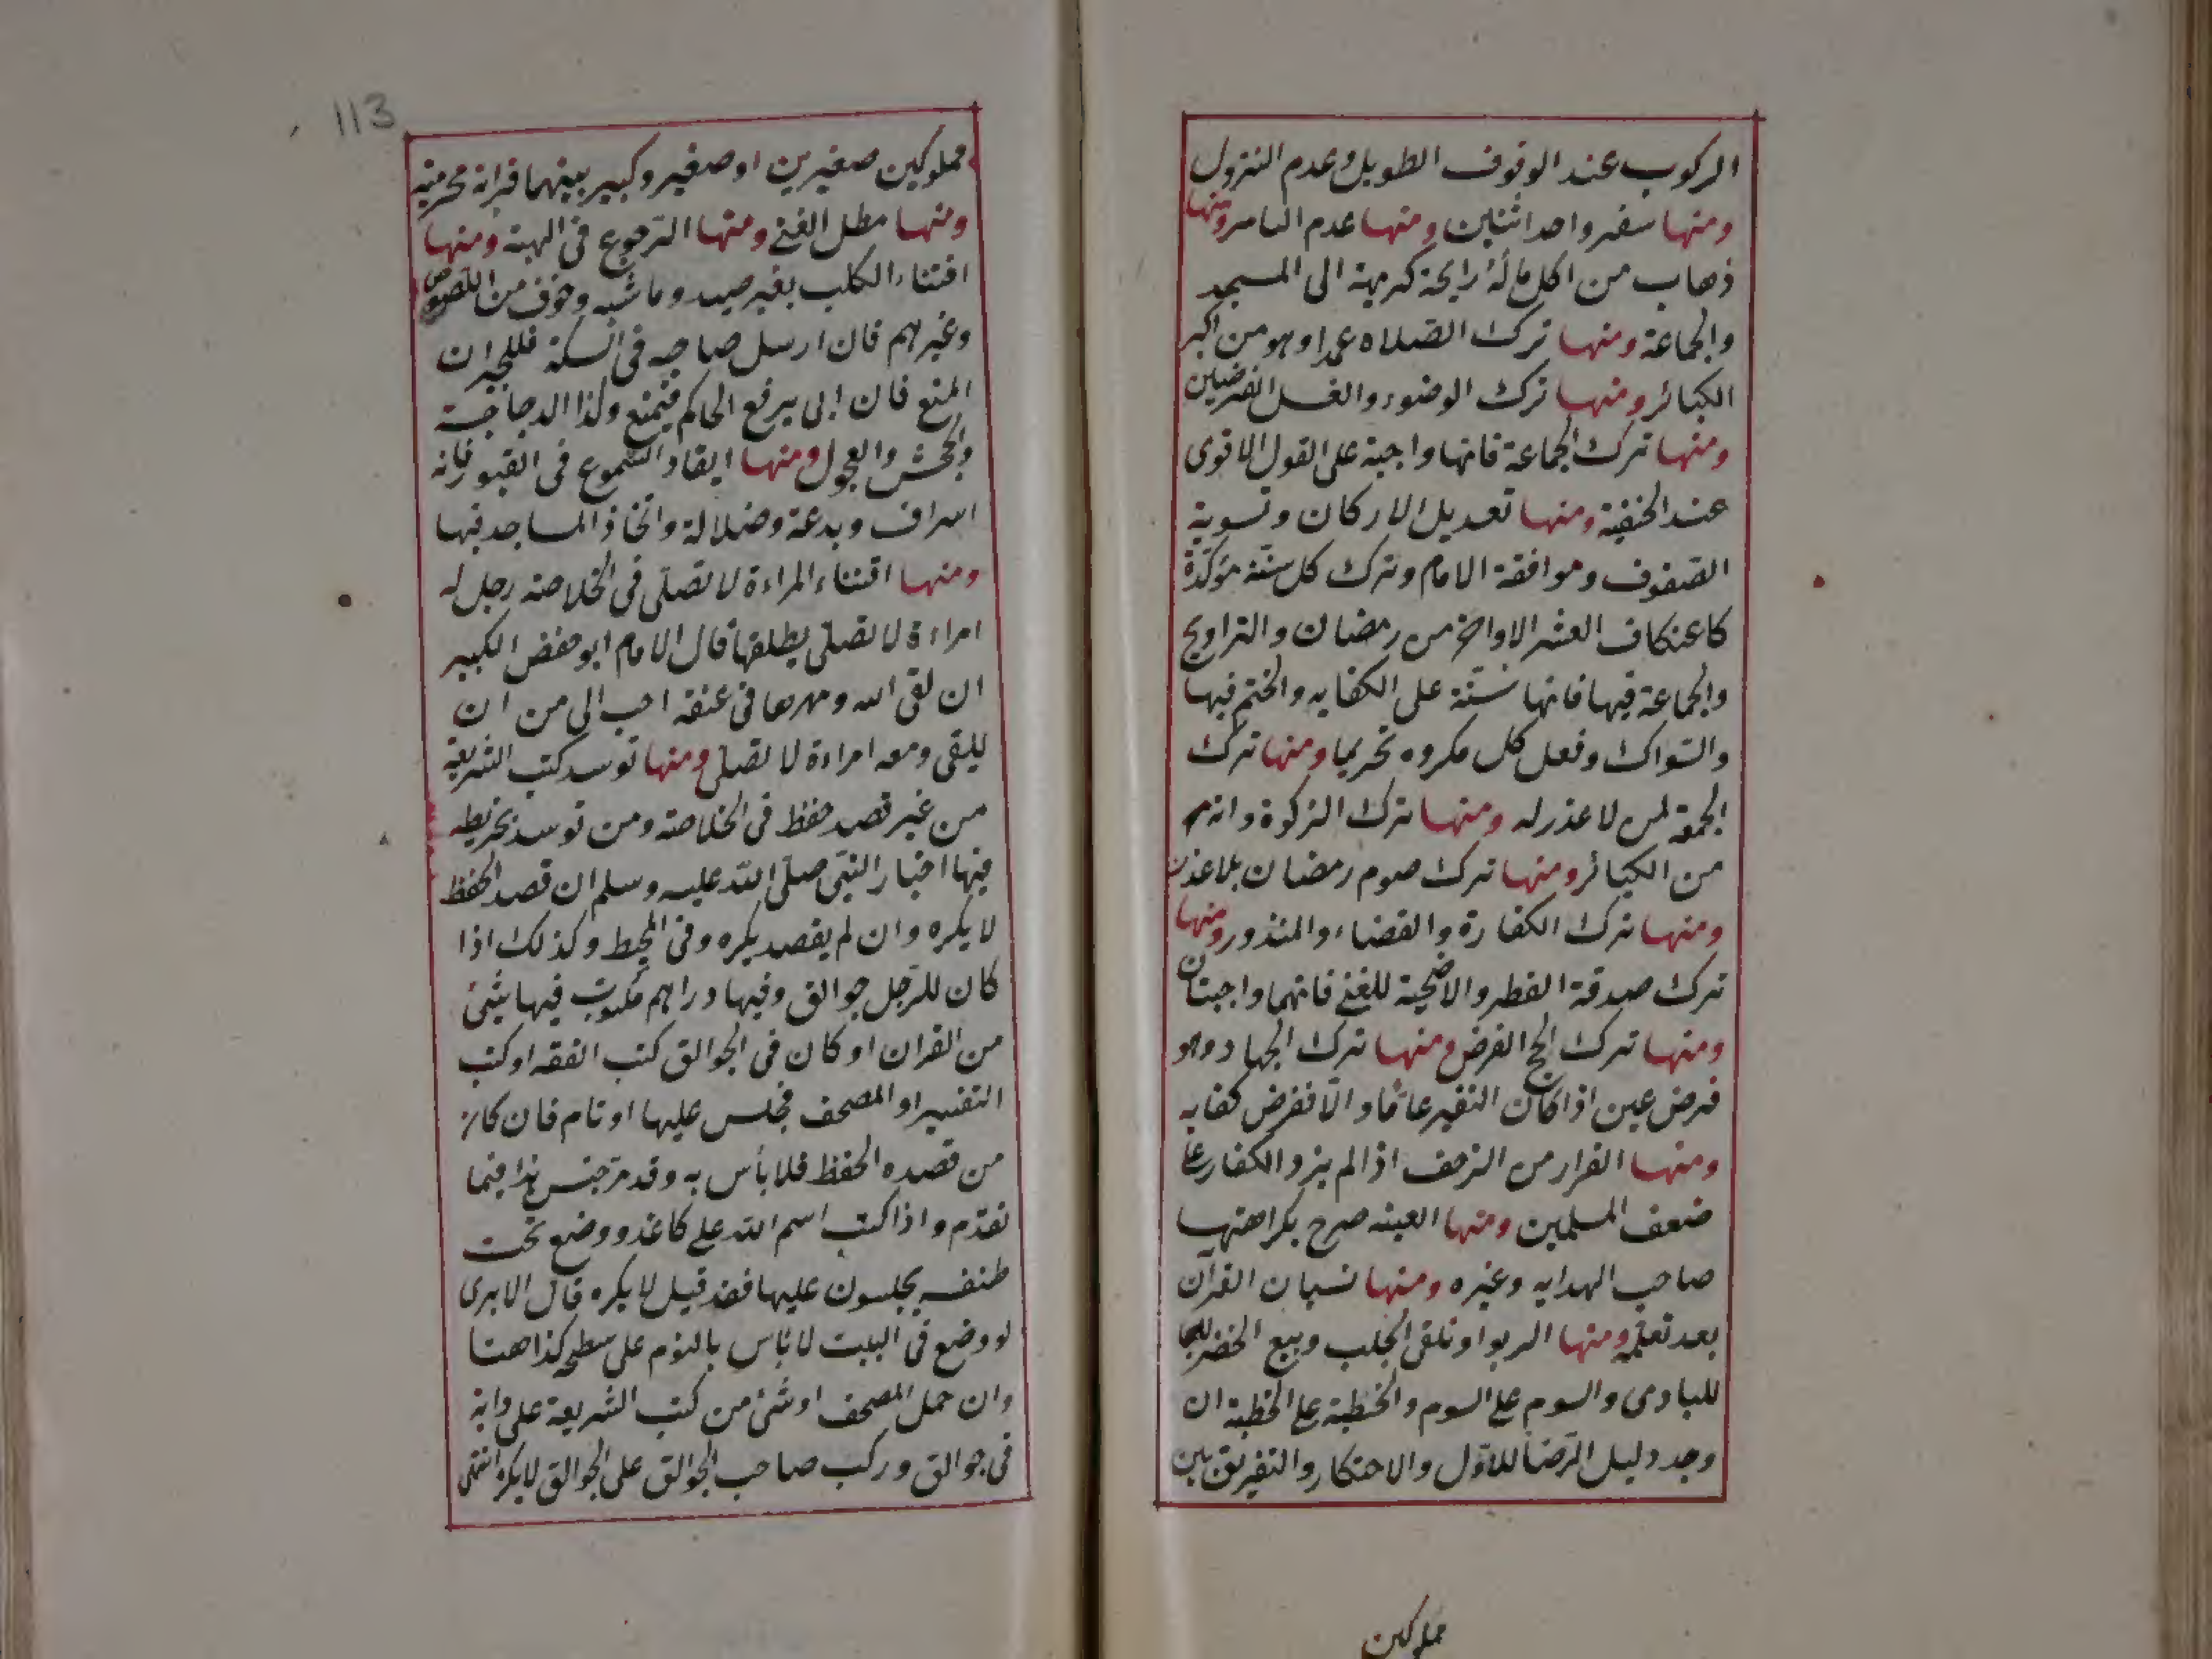 الركوب عند الوقوف الطويل وعدم النزول
ومنها سفر واحد اثنين ومنها عدم التامر ومنها
ذهاب من اكل ماله رايحة كريهة الى المسجد
والجماعة ومنها ترك الصلاه عمدا وهو من اكبر
الكبائر ومنها ترك الوضوء والغسل الفرضين
ومنها ترك الجماعة فانها واجبة على القول الاقوى
عند الحنفية ومنها تعديل الاركان وتسوية
الصفوف وموافقة الامام وترك كل سنة مؤكدة
كاعتكاف العشر الاواخر من رمضان والتراويح
والجماعة فيها فانها سنة على الكفايه والختم فيها
والسواك وفعل كل مكروه تحريما ومنها ترك
الجمعة لمن لا عذر له ومنها ترك الزكوة وانه
من الكبائر ومنها ترك صوم رمضان بلا عذر
ومنها ترك الكفارة والقضاء والمنذور ومنها
ترك صدقة الفطر والاضحية للغنى فانهما واجبتان
ومنها ترك الحج الفرض ومنها ترك الجهاد وهو
فرض عين اذا كان النفير عاما والا ففرض كفايه
ومنها الفرار من الزحف اذا لم يزد الكفار على
ضعف المسلمين ومنها العينه صرح بكراهتها
صاحب الهدايه وغيره ومنها نسيان القرآن
بعد تعلمه ومنها الربوا وتلقى الجلب وبيع الحضر
للبادى والسوم على السوم والخطبة على الخطبة ان
وجد دليل الرضا للاول والاحتكار والتفريق بين
مملوكين
113
مملوكين صغيرين او صغير وكبير بينهما قرابة محرمية
ومنها مطل الغنى ومنها الرجوع فى الهبة ومنها
اقتناء الكلب بغير صيد وماشيه وخوف من اللصوص
وغيرهم فان ارسل صاحبه فى السكة فللجيران
المنع فان ابى يرفع الحاكم فيمنع وكذا الدجاجة
والجحش والعجول ومنها ايقاد الشموع فى القبور فانه
اسراف وبدعة وضلالة واتخاذ المساجد فيها
ومنها اقتناء المراءة لا تصلى فى الخلاصة رجل له
امراءة لا تصلى يطلقها قال الامام ابو حفض الكبير
ان لقى الله ومهرها فى عنقه احب الى من ان
يلقى ومعه امراءة لا تصلى ومنها توسد كتب الشريعة
من غير قصد حفظ فى الخلاصة ومن توسد بخريطه
فيها اخبار النبى صلى الله عليه وسلم ان قصد الحفظ
لا يكره وان لم يقصد يكره وفى المحيط وكذلك اذا
كان للرجل جوالق وفيها دراهم مكتوب فيها شئ
من القران او كان فى الجوالق كتب الفقه او كتب
التفسير او المصحف فجلس عليها او نام فان كان
من قصده الحفظ فلا بأس به وقد مر جنس هذا فيما
تقدم واذا كتب اسم الله على كاغد ووضع تحت
طنفسه يجلسون عليها فقد قيل لا يكره قال الا يرى
لو وضع فى البيت لا باس بالنوم على سطحه كذا هنا
وان حمل المصحف او شئ من كتب الشريعة على دابة
فى جوالق وركب صاحب الجوالق على الجوالق لا يكره انتهى